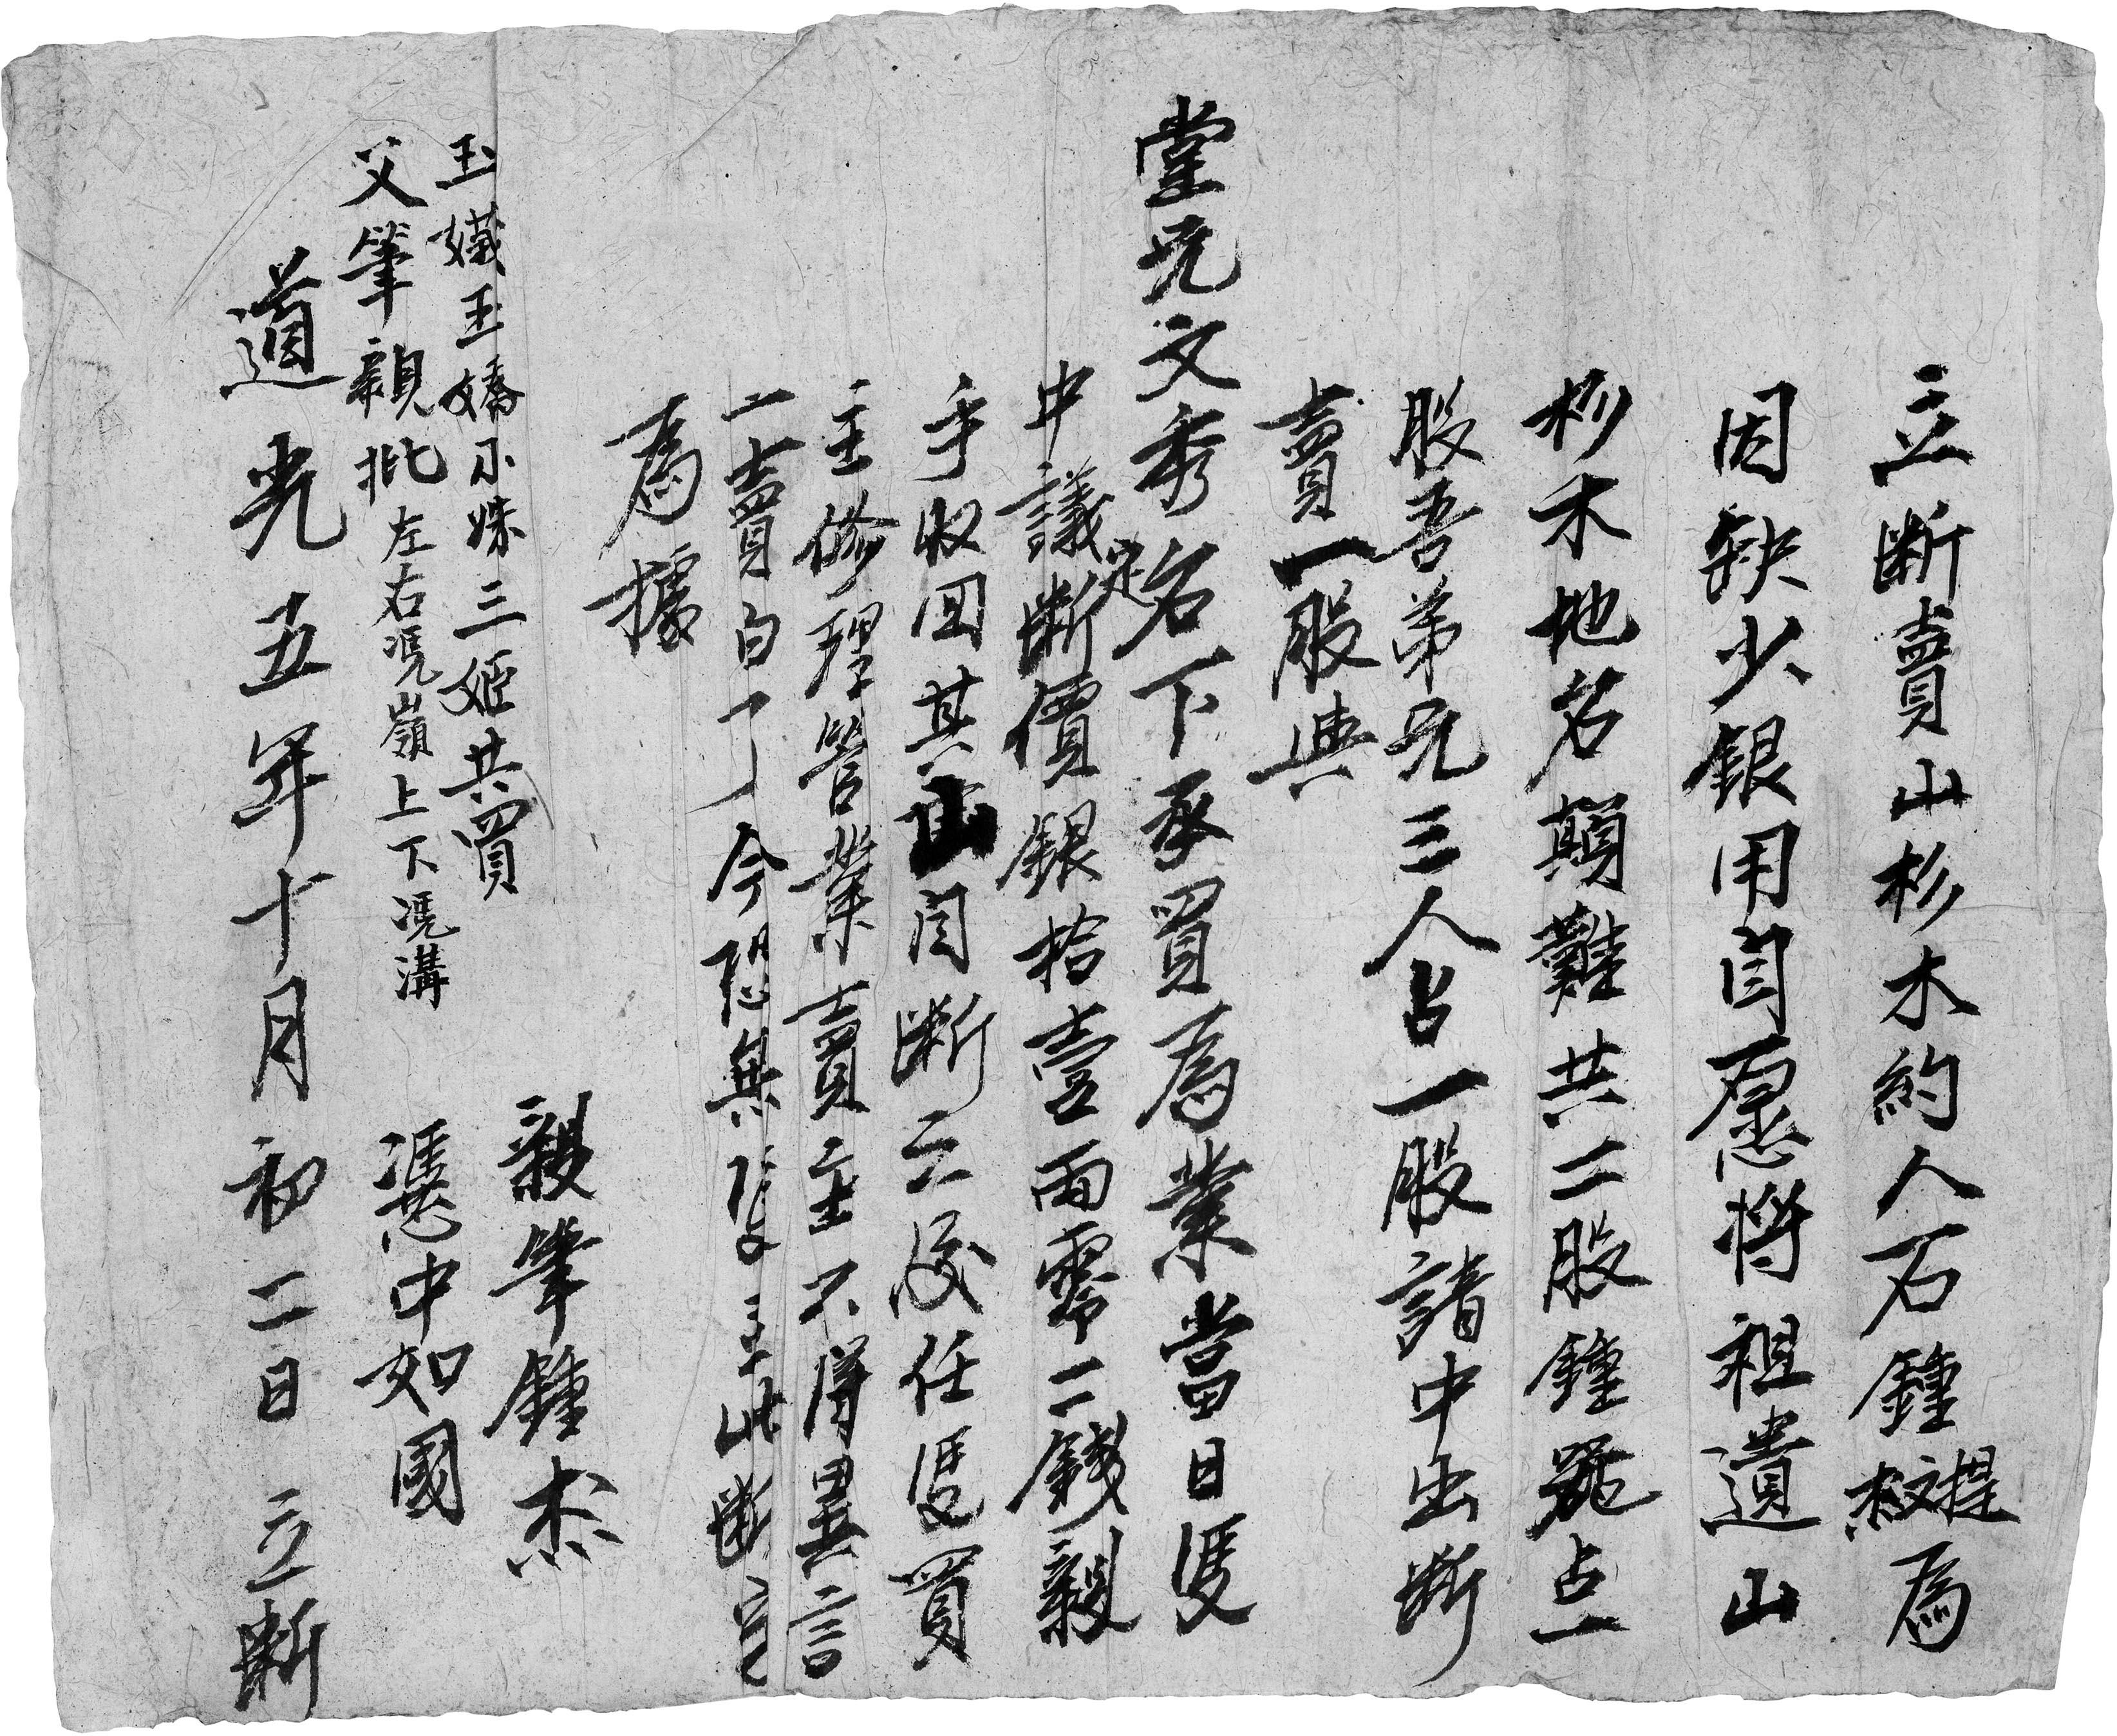 立断賣山杉木約人石鍾文提杰為
因缺少銀用自愿将祖遺山
杉木地名顛難共二股鍾占一
股吾弟兄三人占一股請中出断
賣一股與
堂兄文秀名下承買為業當日凴
中議定断價銀拾壹両零二錢親
手收回其山自断之後任凴買
主修理管業賣主不得異言
一賣百了今恐無凴立此断字
為據
親筆鍾杰
玉孅玉嬌小妹三姬共買
父筆親批左右凴嶺上下凴溝
凴中如國
道光五年十月初二日立断